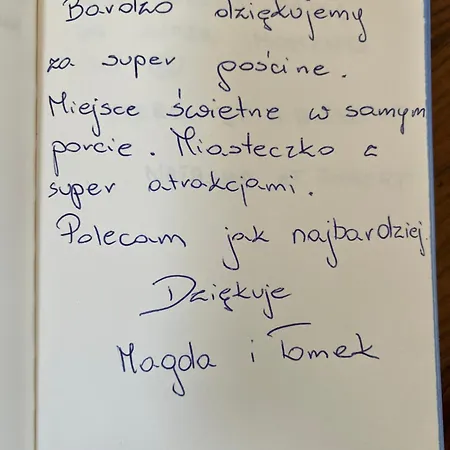 Bardzo dziękujemy
za super gościne.
Miejsce świetne w samym
porcie. Miasteczko z
super atrakcjami.
Polecam jak najbardziej.
Dziękuje
Magda i Tomek